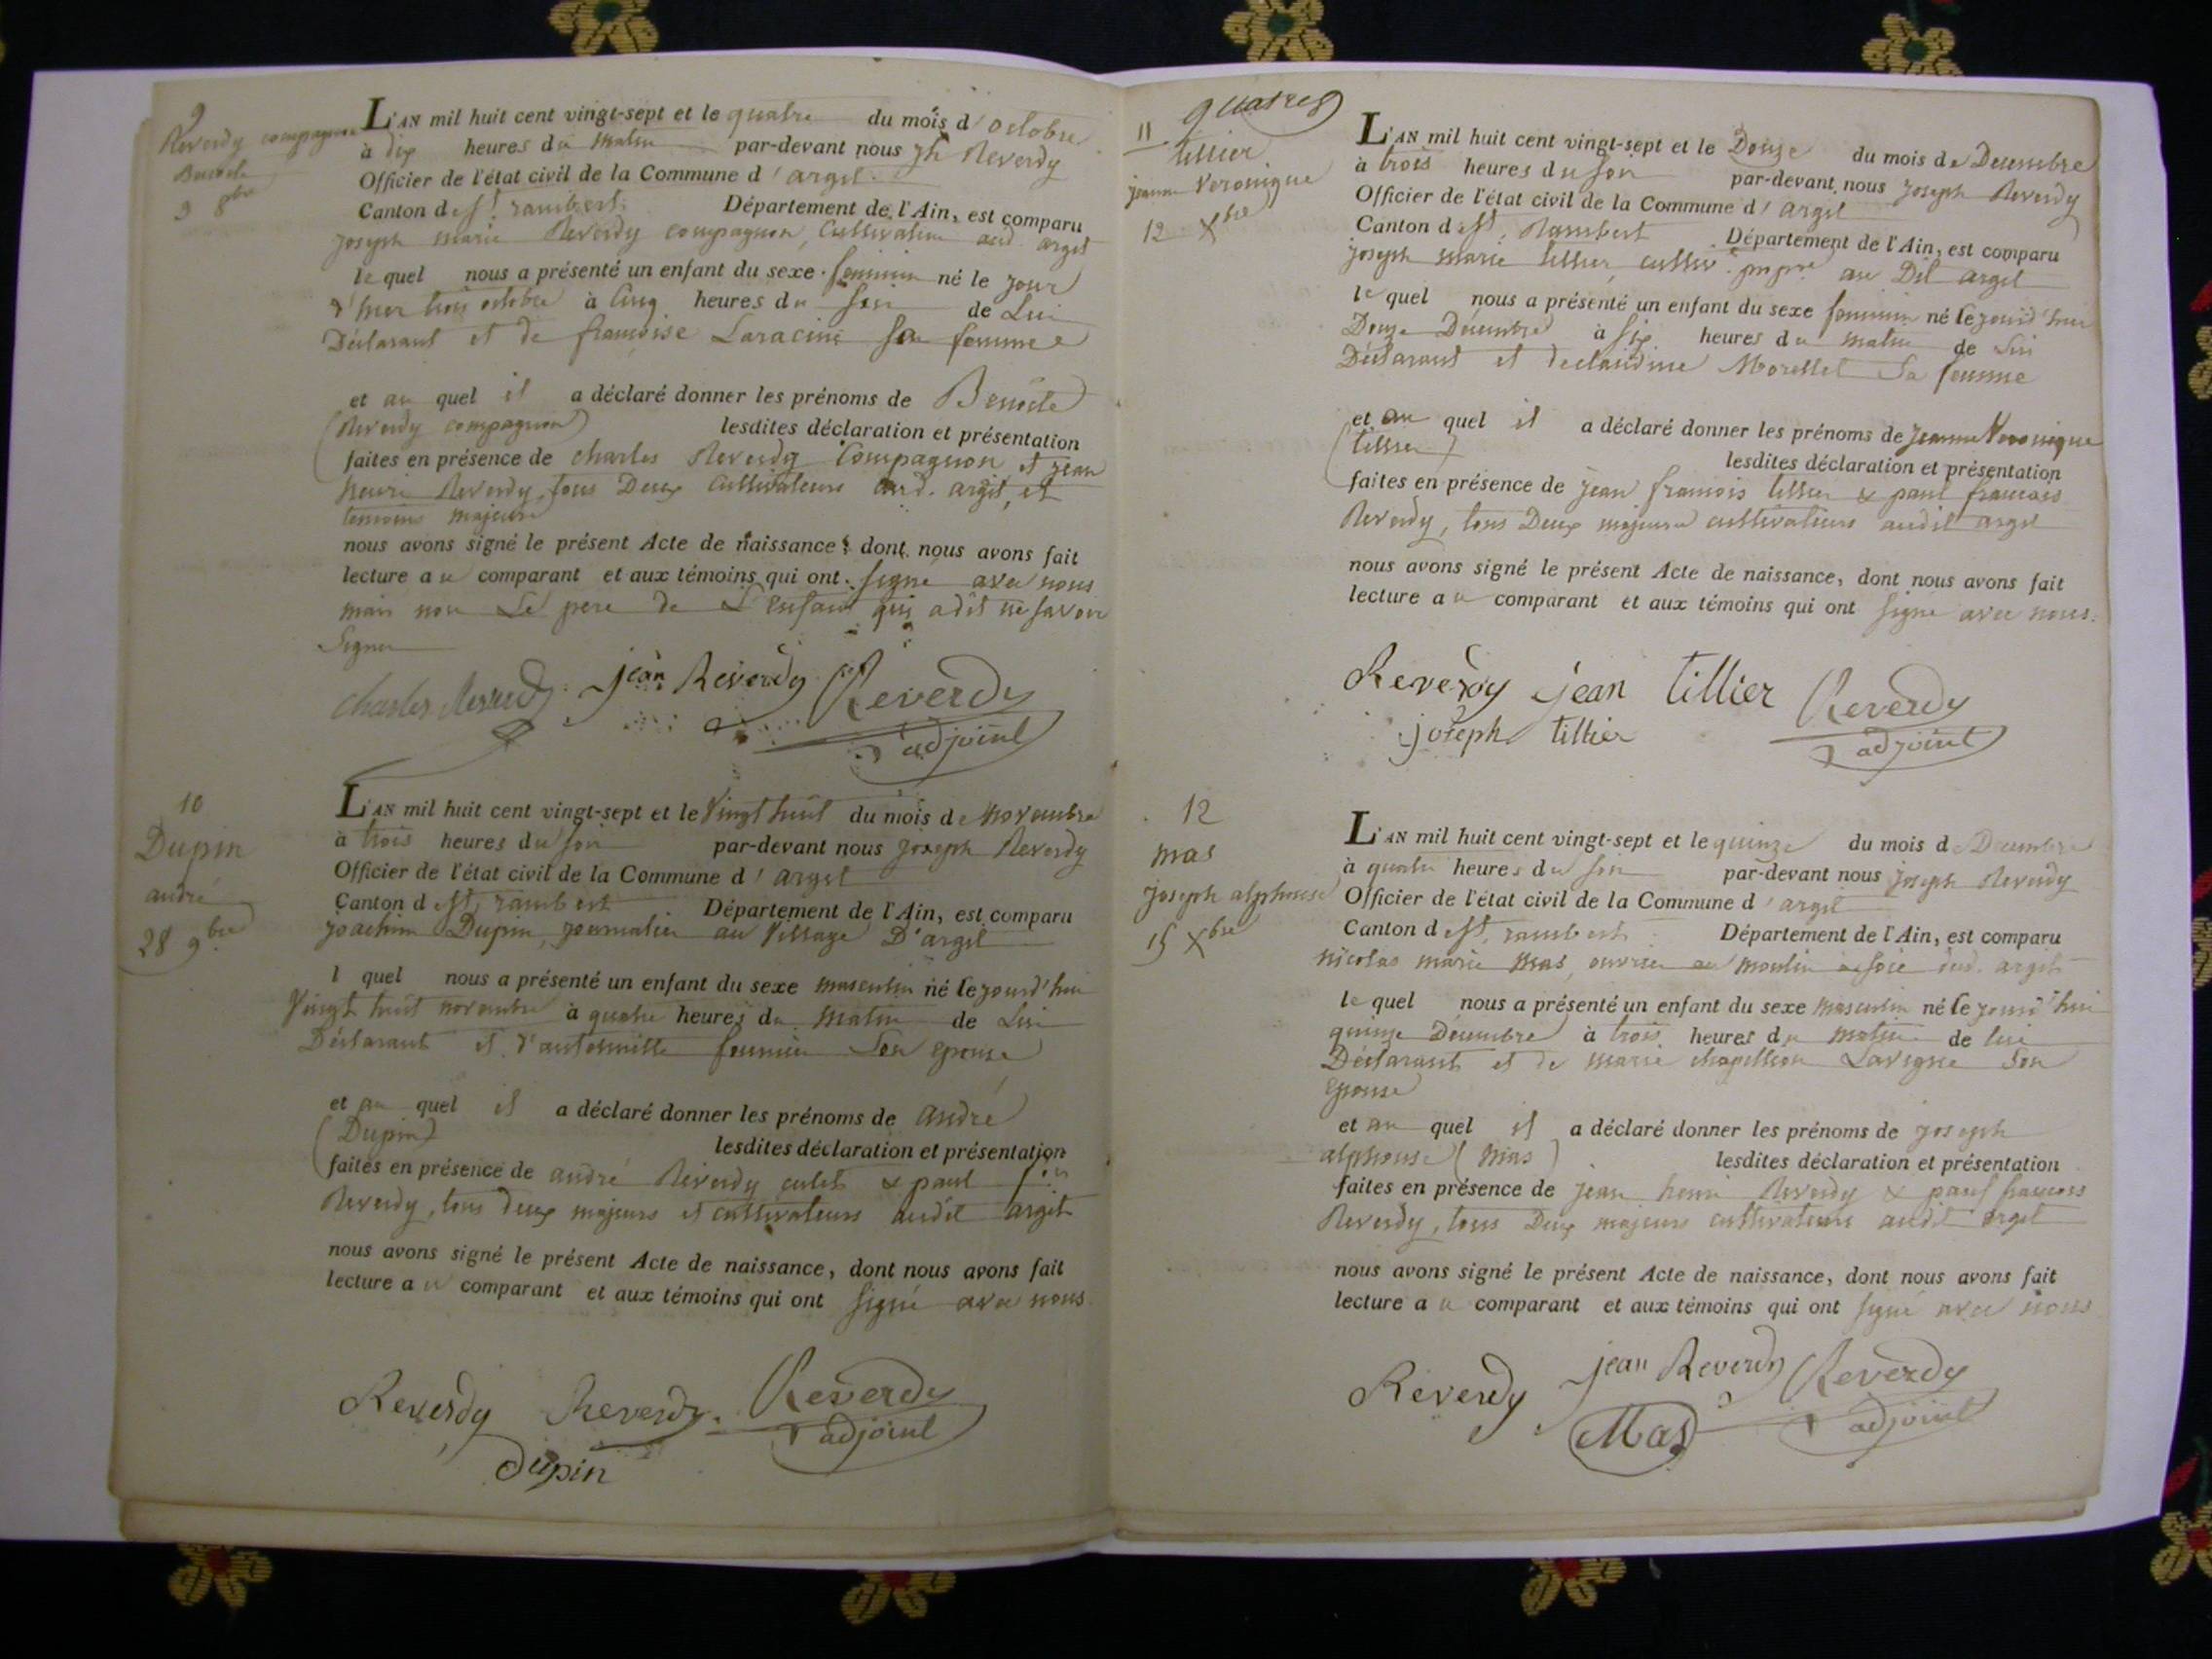 9
Reverdy compagnon
Benoite
3 8bre
L'AN mil huit cent vingt-sept et le quatre du mois d'octobre
à dix heures du matin par-devant nous jh Reverdy
Officier de l'état civil de la Commune d'argit
Canton de St. rambert Département de l'Ain, est comparu
joseph marie Reverdy compagnon, Cultivateur aud. argit
le quel nous a présenté un enfant du sexe feminin né le jour
d'hier trois octobre à Cinq heures du soir de Lui
Déclarant et de françoise Laracine sa femme
et au quel il a déclaré donner les prénoms de Benoite
(Reverdy compagnon) lesdites déclaration et présentation
faites en présence de charles Reverdy Compagnon et jean
henri Reverdy, tous Deux Cultivateurs aud. argit, et
temoins majeurs
nous avons signé le présent Acte de naissance, dont nous avons fait
lecture au comparant et aux témoins qui ont signé avec nous
mais non Le pere de L'Enfant qui a dit ne savoir
Signer
charles Reverdy jean Reverdy Reverdy
adjoint
10
Dupin
andré
28 9bre
L'AN mil huit cent vingt-sept et le Vingt huit du mois de Novembre
à trois heures du soir par-devant nous joseph Reverdy
Officier de l'état civil de la Commune d'argit
Canton de St. rambert Département de l'Ain, est comparu
joachim Dupin, journalier au Village D'argit
l quel nous a présenté un enfant du sexe masculin né le jourd'hui
Vingt huit novembre à quatre heures du Matin de Lui
Déclarant et d'antoinette fournier Son epouse
et au quel il a déclaré donner les prénoms de andré
(Dupin) lesdites déclaration et présentation
faites en présence de andré Reverdy & paul
Reverdy, tous deux majeurs et cultivateurs audit argit
nous avons signé le présent Acte de naissance, dont nous avons fait
lecture au comparant et aux témoins qui ont signé avec nous
Reverdy Reverdy Reverdy
adjoint
Dupin
quatre
11
tillier
jeanne Veronique
12 Xbre
L'AN mil huit cent vingt-sept et le Douze du mois de Decembre
à trois heures du soir par-devant nous joseph Reverdy
Officier de l'état civil de la Commune d'argit
Canton de St. Rambert Département de l'Ain, est comparu
joseph marie tillier, cultiv. propre au Dit argit
le quel nous a présenté un enfant du sexe feminin né le jourd'hui
Douze Décembre à six heures du matin de Lui
Déclarant et de claudine Morellet Sa femme
et au quel il a déclaré donner les prénoms de jeanne Veronique
(tillier) lesdites déclaration et présentation
faites en présence de jean françois tillier & paul françois
Reverdy, tous Deux majeurs cultivateurs audit argit
nous avons signé le présent Acte de naissance, dont nous avons fait
lecture au comparant et aux témoins qui ont signé avec nous.
Reverdy jean tillier Reverdy
joseph tillier adjoint
12
mas
joseph alphonse
15 Xbre
L'AN mil huit cent vingt-sept et le quinze du mois de Decembre
à quatre heures du soir par-devant nous joseph Reverdy
Officier de l'état civil de la Commune d'argit
Canton de St. rambert Département de l'Ain, est comparu
nicolas marie mas, ouvrier au moulin à soie aud. argit
le quel nous a présenté un enfant du sexe masculin né le jourd'hui
quinze Décembre à trois heures du matin de lui
Déclarant et de marie chapellion Lavigne Son
Epouse
et au quel il a déclaré donner les prénoms de joseph
alphonse (mas) lesdites déclaration et présentation
faites en présence de jean henri Reverdy & paul françois
Reverdy, tous Deux majeurs cultivateurs audit argit
nous avons signé le présent Acte de naissance, dont nous avons fait
lecture au comparant et aux témoins qui ont signé avec nous
Reverdy jean Reverdy Reverdy
Mas adjoint